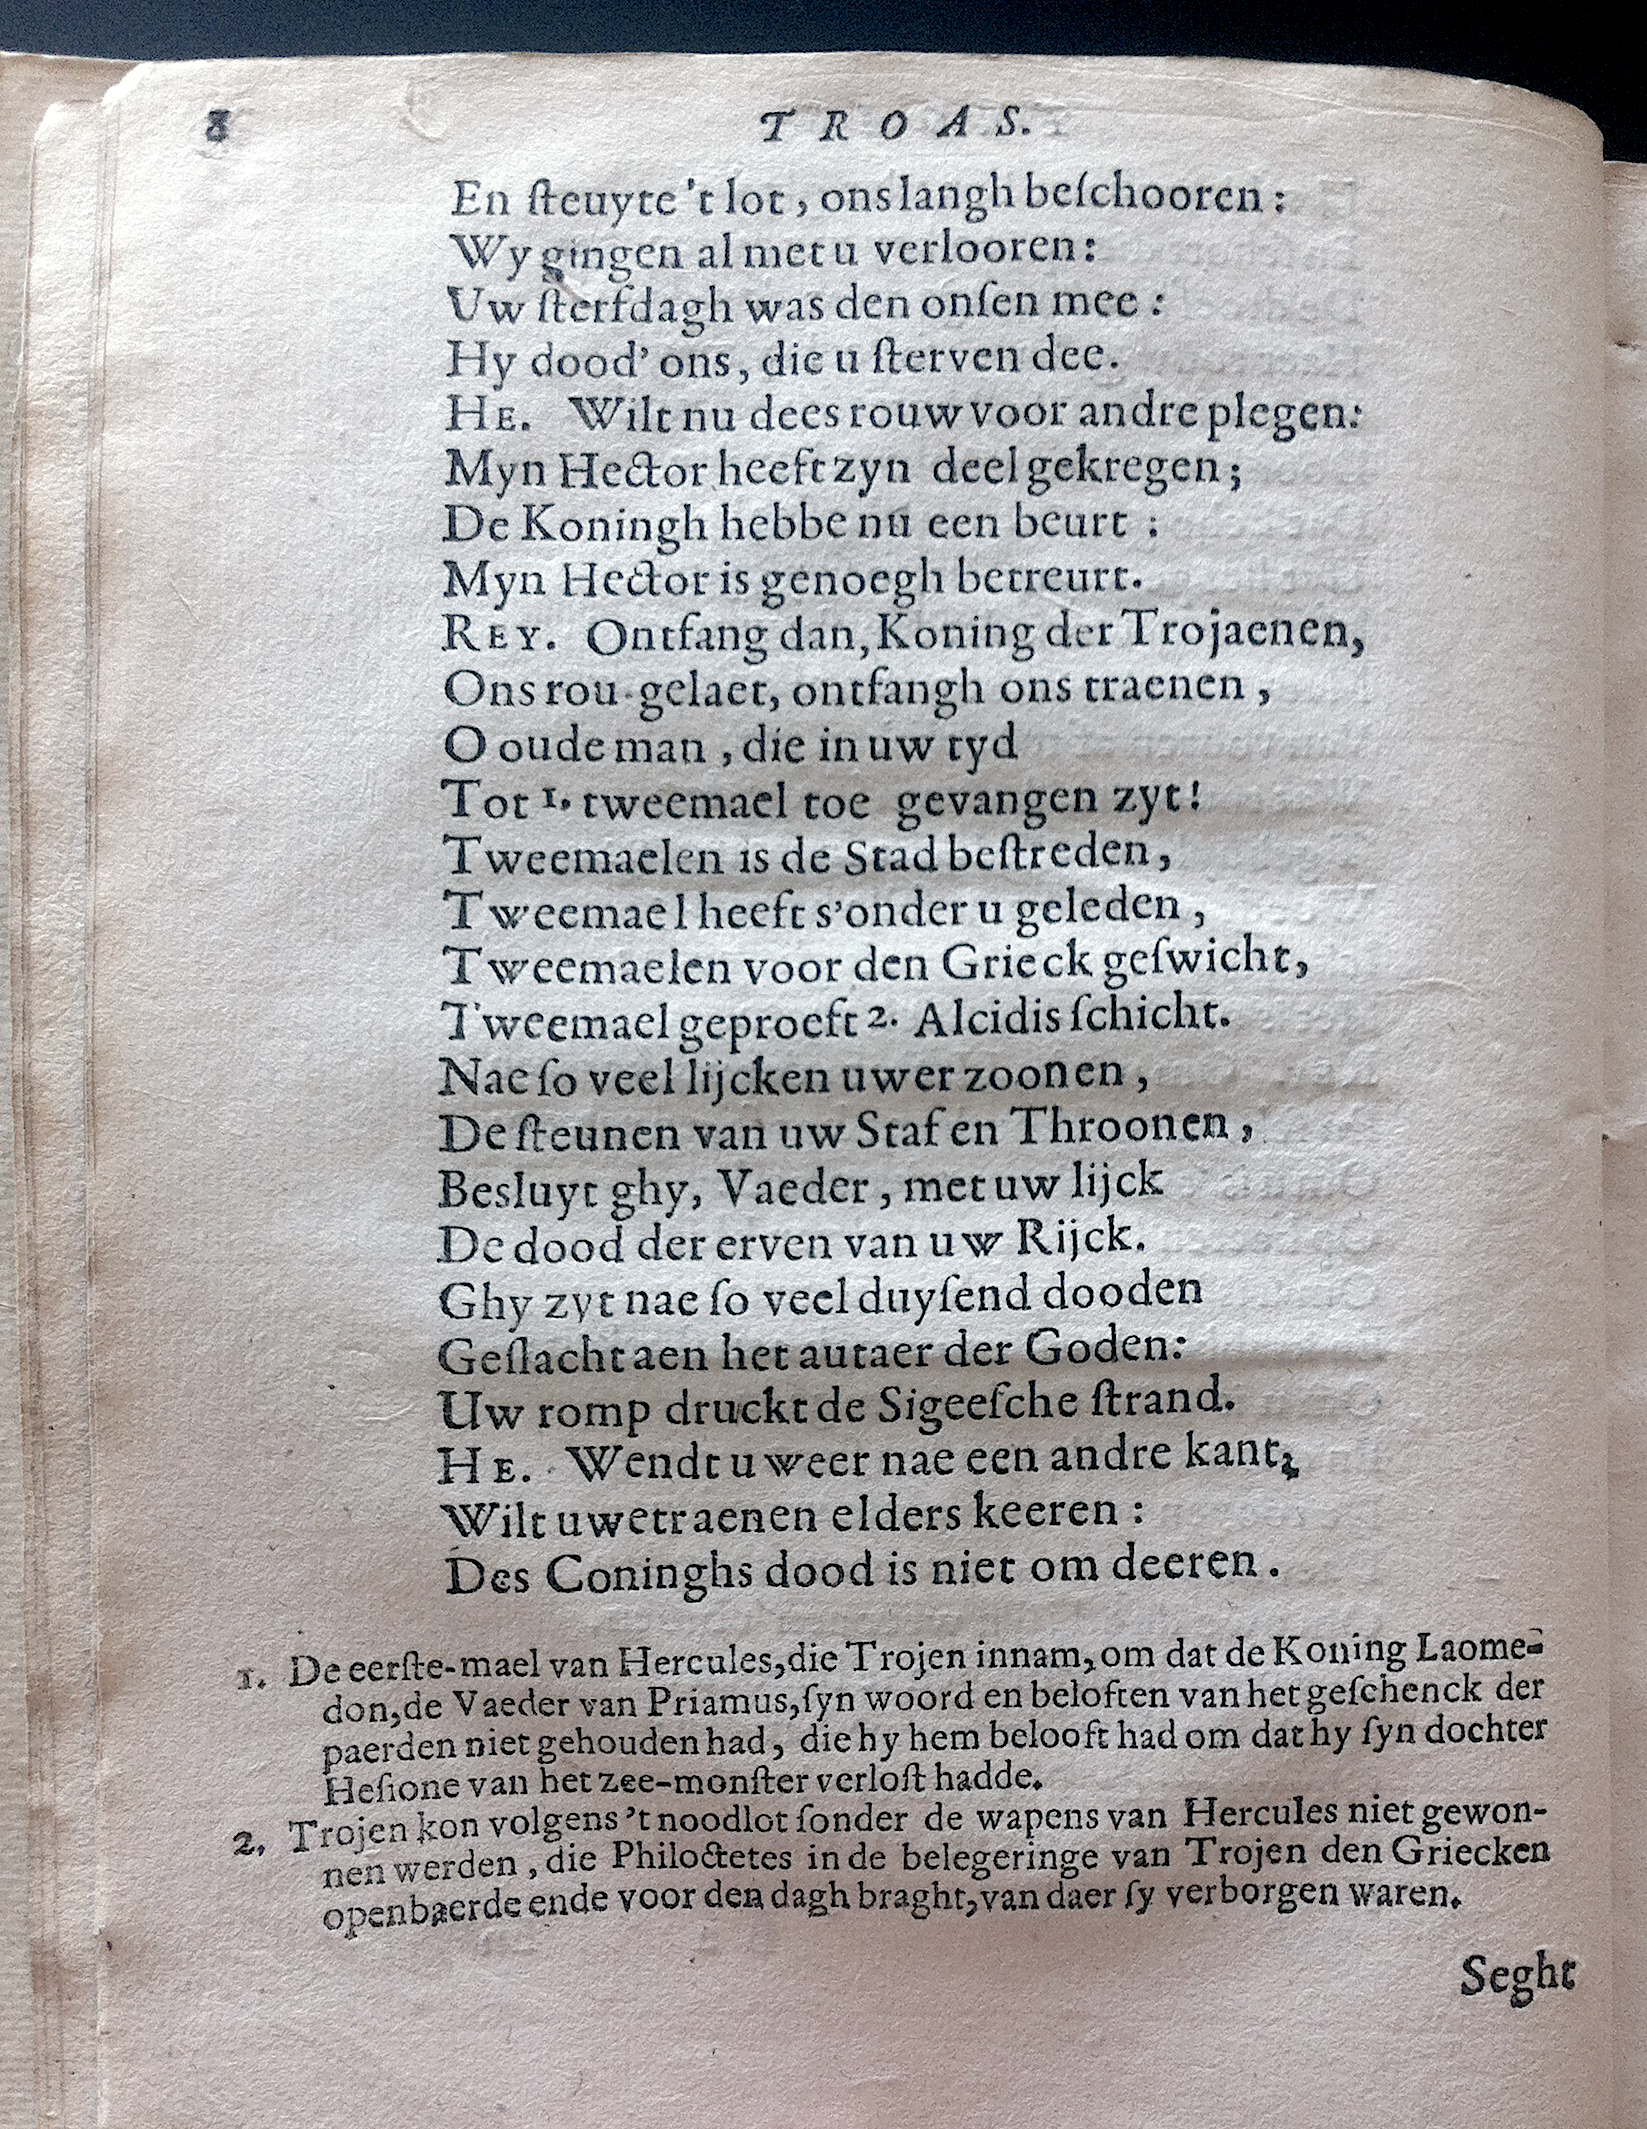 8 TROAS.
En ſteuyte 't lot, ons langh beſchooren:
Wy gingen al met u verlooren:
Uw ſterfdagh was den onſen mee:
Hy dood' ons, die u ſterven dee.
HE. Wilt nu dees rouw voor andre plegen:
Myn Hector heeft zyn deel gekregen;
De Koningh hebbe nu een beurt:
Myn Hector is genoegh betreurt.
REY. Ontfang dan, Koning der Trojaenen,
Ons rou-gelaet, ontfangh ons traenen,
O oude man, die in uw tyd
Tot 1. tweemael toe gevangen zyt!
Tweemaelen is de Stad beſtreden,
Tweemael heeft s'onder u geleden,
Tweemaelen voor den Grieck geſwicht,
Tweemael geproeft 2. Alcidis ſchicht.
Nae ſo veel lijcken uwer zoonen,
De ſteunen van uw Staf en Throonen,
Besluyt ghy, Vaeder, met uw lijck
De dood der erven van uw Rijck.
Ghy zyt nae ſo veel duyſend dooden
Geſlacht aen het autaer der Goden:
Uw romp druckt de Sigeeſche ſtrand.
HE. Wendt u weer nae een andre kant,
Wilt uwe traenen elders keeren:
Des Coninghs dood is niet om deeren.
1. De eerſte-mael van Hercules, die Trojen innam, om dat de Koning Laome-
don, de Vaeder van Priamus, ſyn woord en beloften van het geſchenck der
paerden niet gehouden had, die hy hem belooft had om dat hy ſyn dochter
Heſione van het zee-monſter verloſt hadde.
2. Trojen kon volgens 't noodlot ſonder de wapens van Hercules niet gewon-
nen werden, die Philoctetes in de belegeringe van Trojen den Griecken
openbaerde ende voor den dagh braght, van daer ſy verborgen waren.
Seght